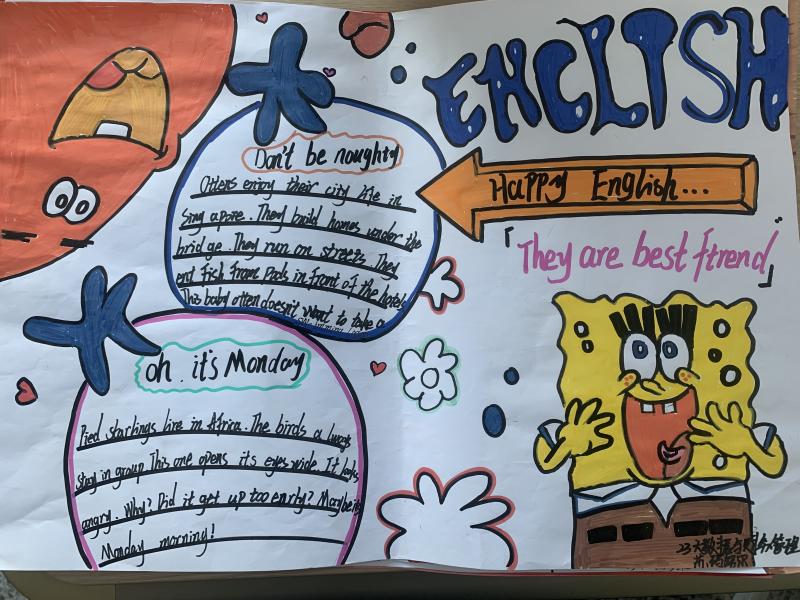 ENGLISH
Happy English...
「They are best ftrend」
Don't be noughty
Otters enjoy their city life in
Singapore. They build homes under the
bridge. They run on streets. They
ent fish from Pods in front of the hotels
This baby otten doesn't want to take a
oh. it's Monday
Pied starlings lire in Africa. The birds a lways
stay in group This one opens its eyes wide. It looks
angry. Why? Did it get up too enrly? Maybe it's
Monday morning!
23大数据与财务管理